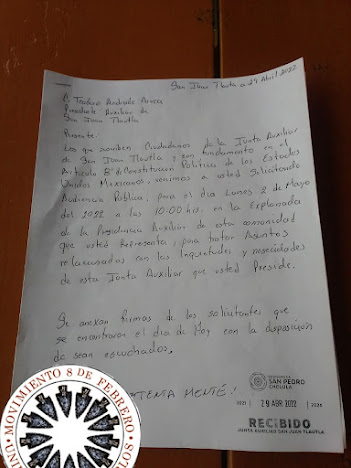 San Juan Tlautla a 29 Abril 2022
C. Teodoro Andrade
Presidente Auxiliar de
San Juan Tlautla
Presente:
Los que suscriben Ciudadanos de la Junta Auxiliar
de San Juan Tlautla y con fundamento en el
Articulo 8° de Constitución Politica de los Estados
Unidos Mexicanos, venimos a usted Solicitando
Audiencia Publica, para el dia Lunes 2 de Mayo
del 2022 a las 10:00 hrs. en la Explanada
de la Presidencia Auxiliar de esta comunidad
que usted Representa, para tratar Asuntos
relacionados con las Inquietudes y necesidades
de esta Junta Auxiliar que usted Preside.
Se anexan firmas de los solicitantes que
se encontraron el dia de Hoy con la disposición
de sean escuchados.
ATENTA MENTE!
SAN PEDRO
CHOLULA
2021
29 ABR 2022
RECIBIDO
JUNTA AUXILIAR SAN JUAN TLAUTLA
MOVIMIENTO 8 DE FEBRERO